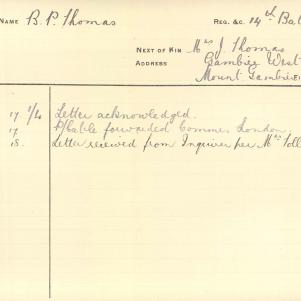 NAME B. P. Thomas REG. &c. 14th Bat
NEXT OF KIN Mrs J. Thomas
ADDRESS Gambier West
Mount Gambier
17 1/4 Letter acknowledged.
17 forwarded Commr. London.
18. Letter received from Inquirer per Mrs